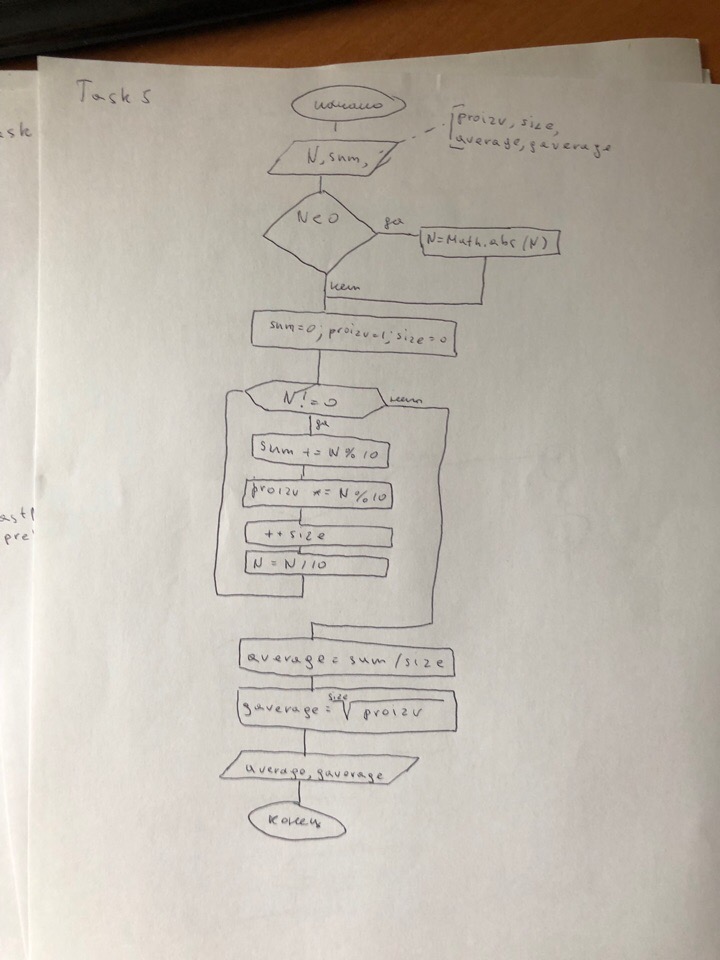 Task 5
начало
N, sum,
proizv, size,
average, gaverage
N < 0
да
N = Math.abs (N)
нет
sum=0; proizv=1; size=0
N != 0
нет
да
sum += N % 10
proizv *= N % 10
++size
N = N / 10
average = sum / size
gaverage = size√proizv
average, gaverage
конец
ask